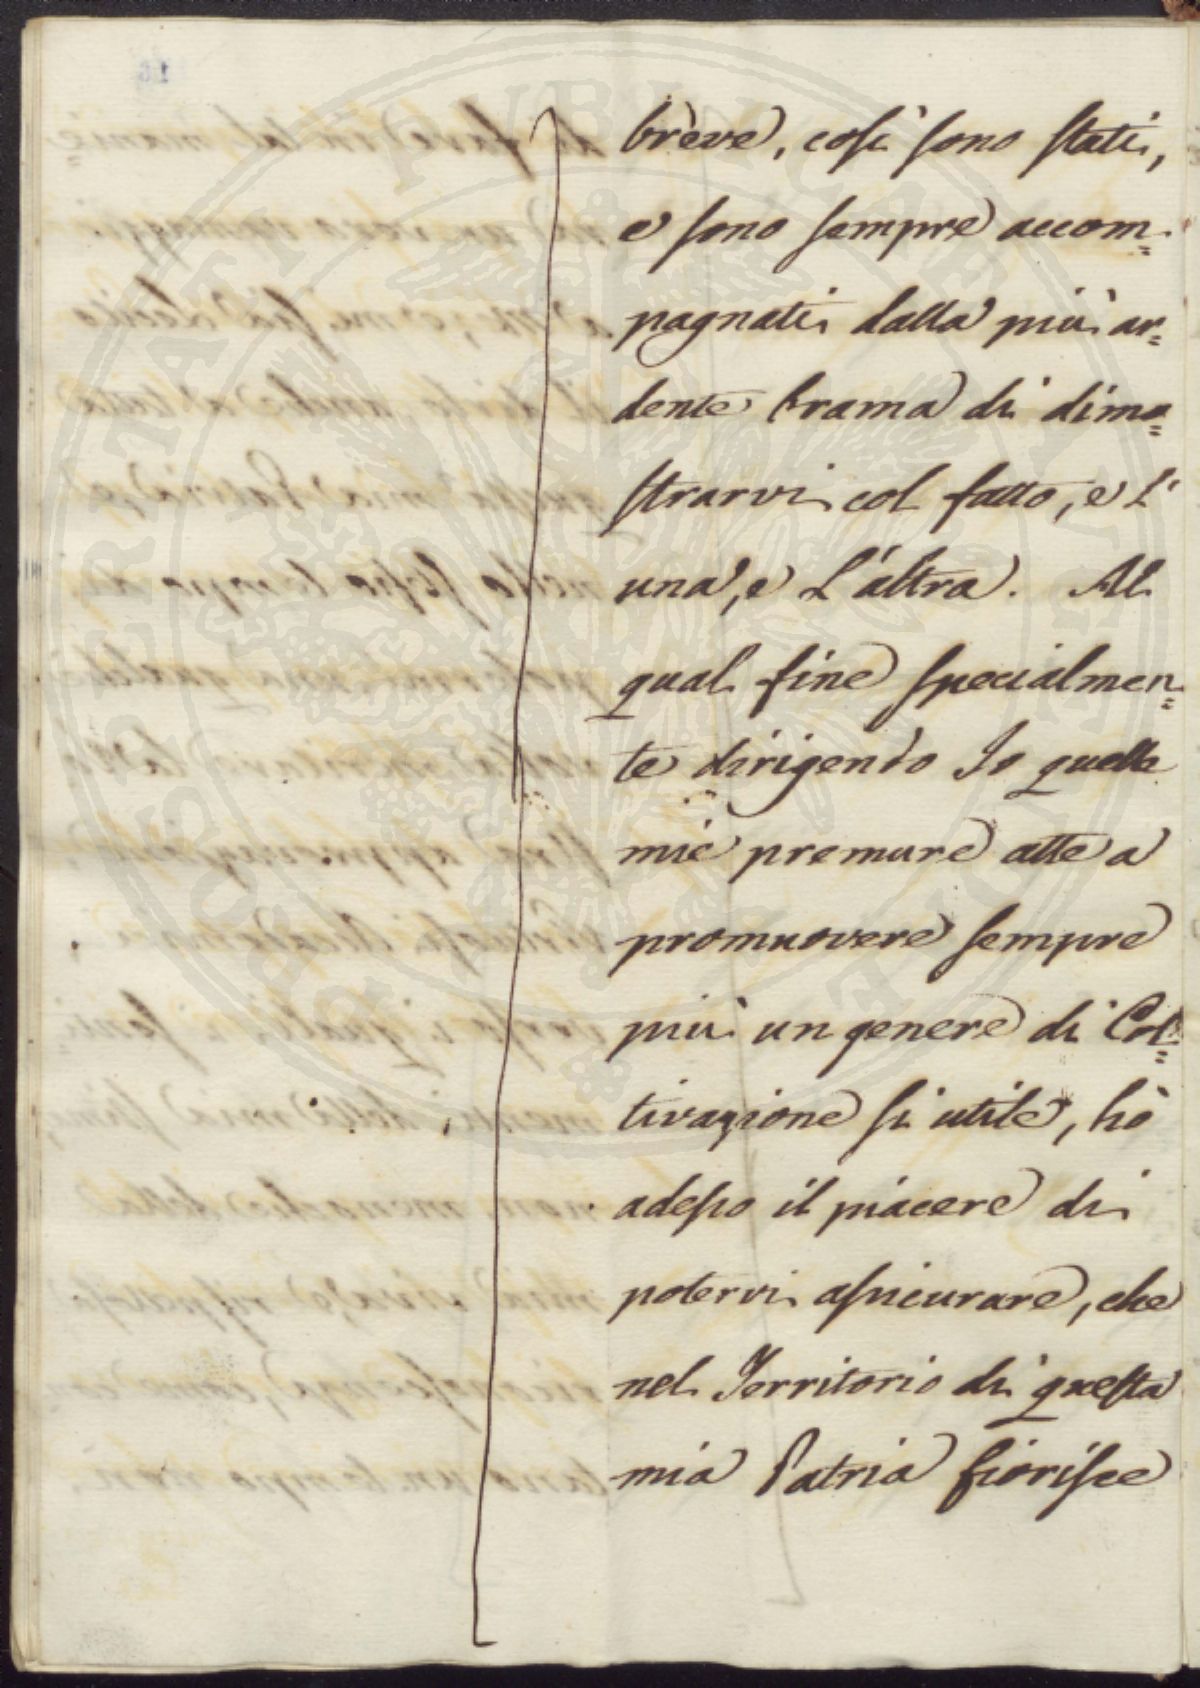 breve, così sono stati,
e sono sempre accom=
pagnati dalla più ar=
dente brama di dimo=
strarvi col fatto, e l'
una, e l'altra. Al
qual fine specialmen=
te dirigendo Io quelle
mie premure atte a
promuovere sempre
più un genere di Col=
tivazione sì utile, hò
adesso il piacere di
potervi assicurare, che
nel Territorio di questa
mia Patria fiorisce